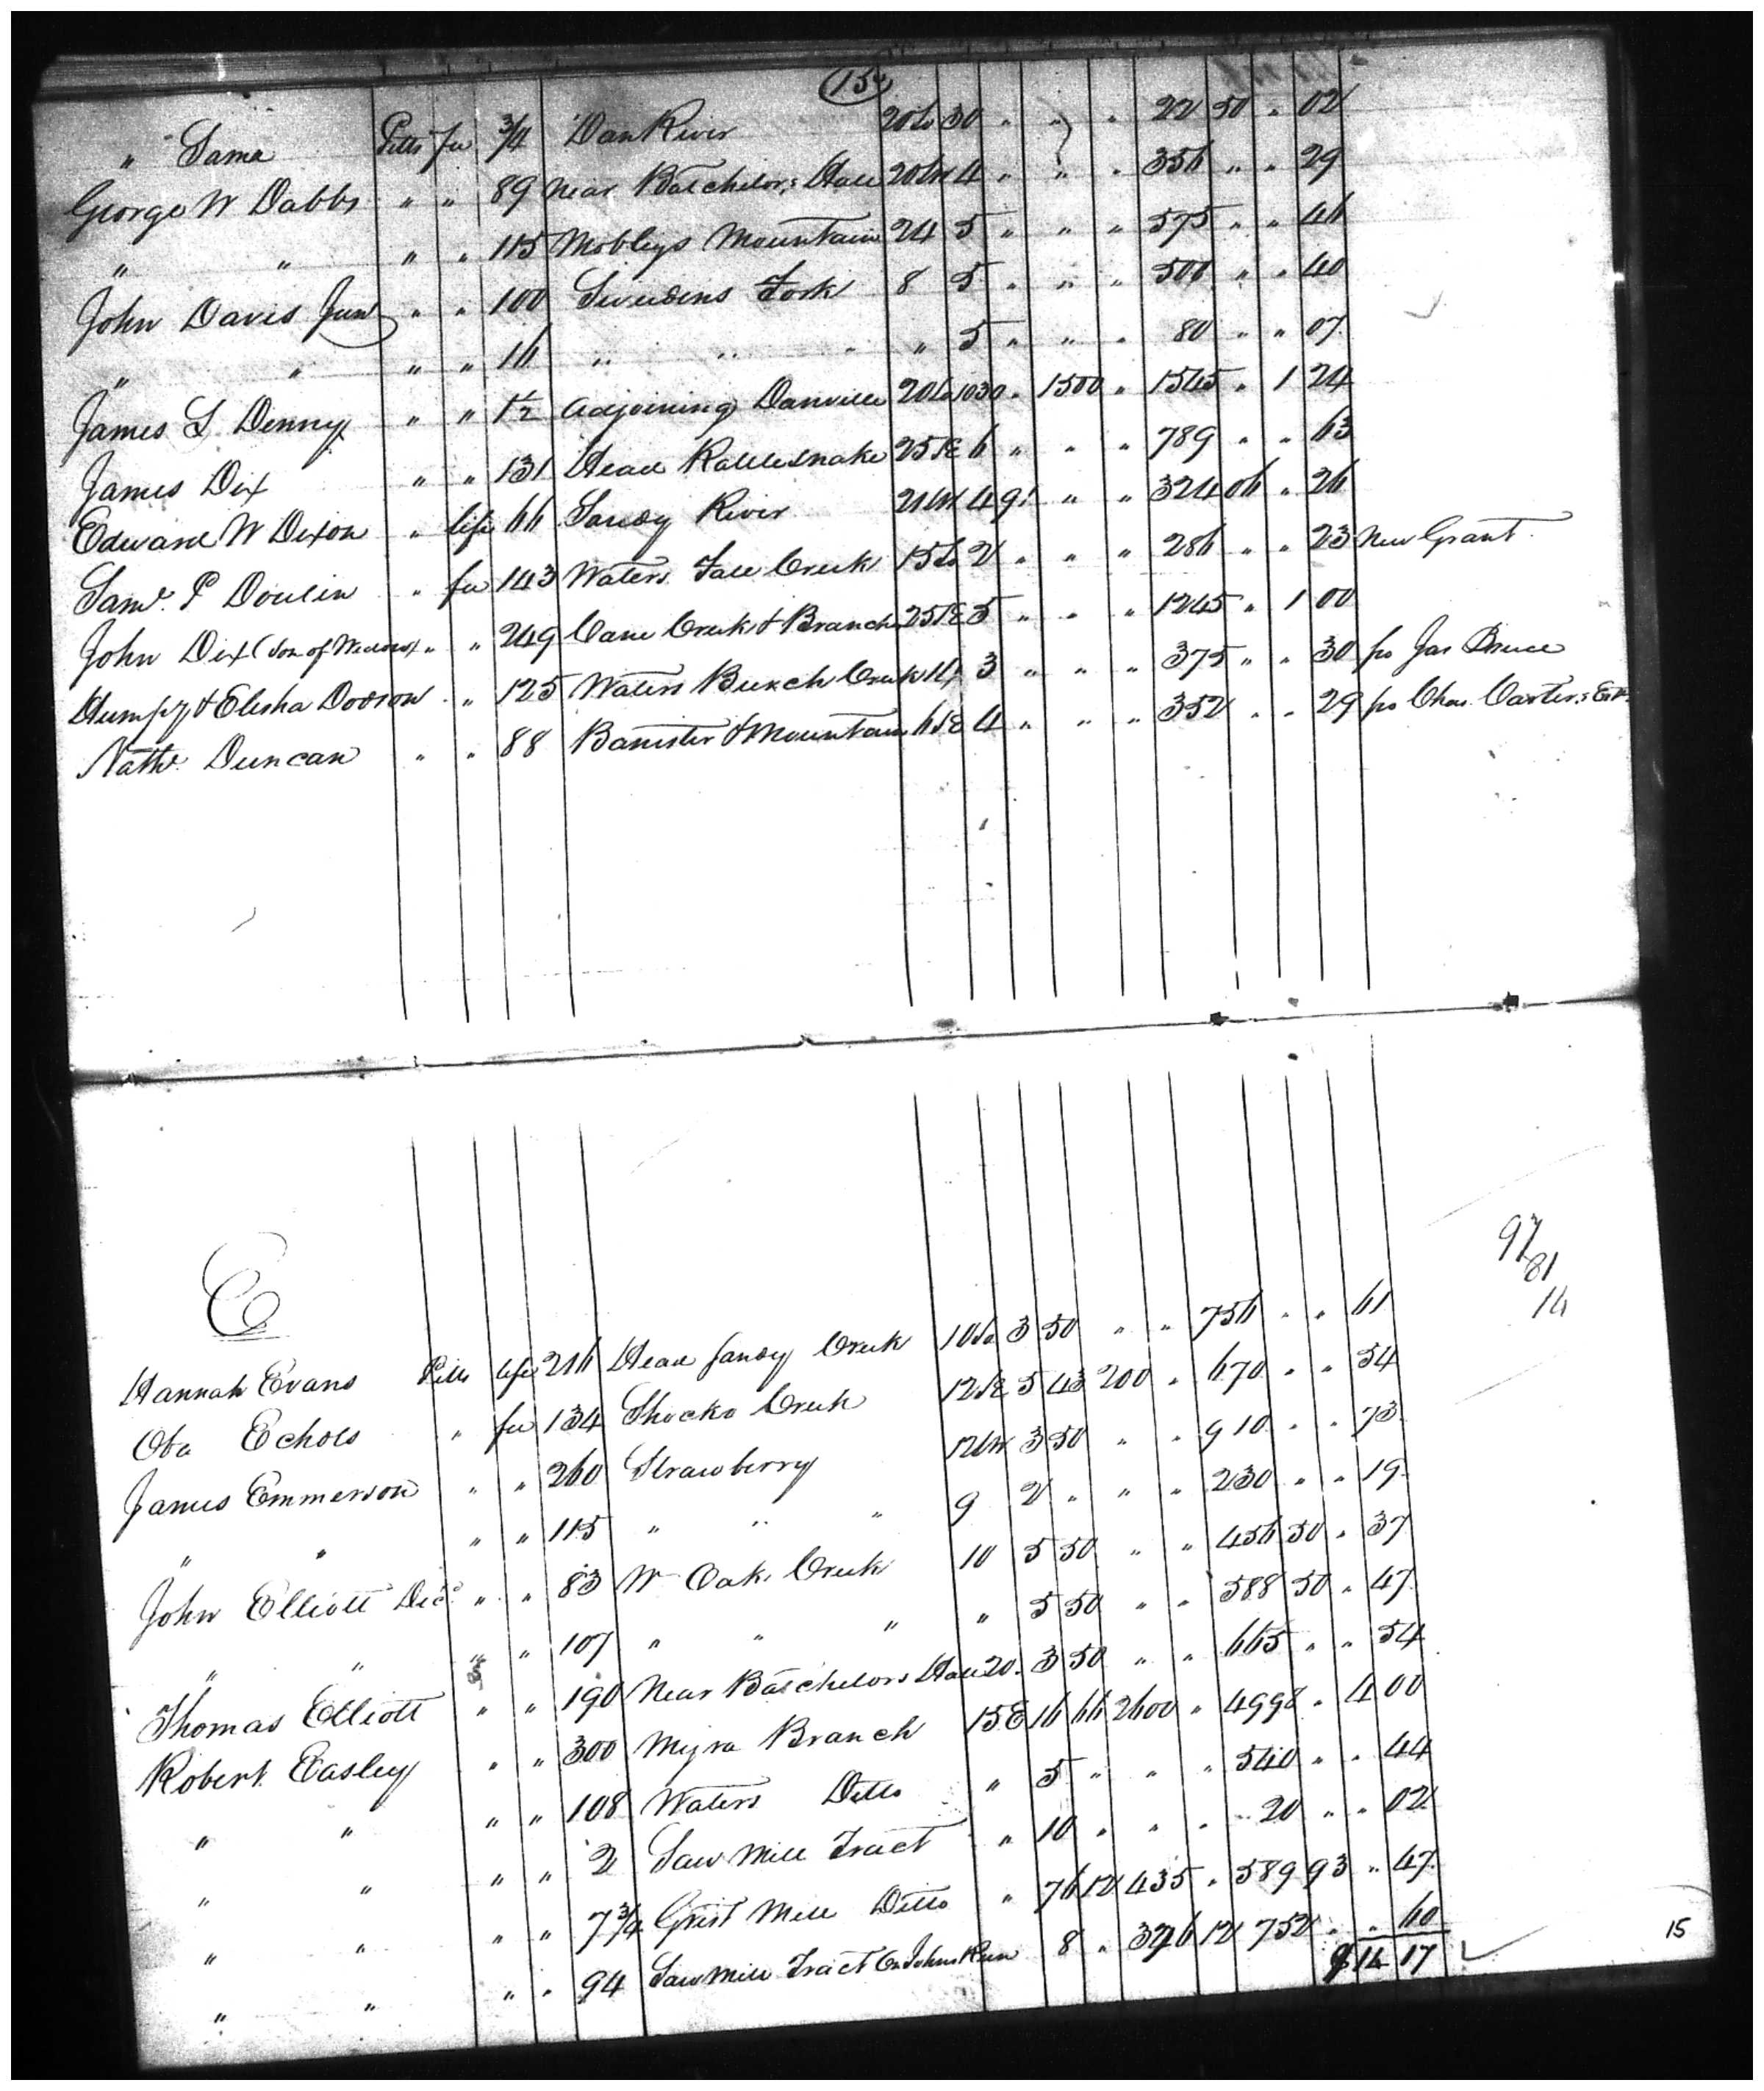 15
" Same Pitts fee 3/4 Dan River 20 So 30 " " " 22 50 " 02
George W Dabbs " " 89 Near Batchelors Hall 20 W 4 " " " 356 " " 29
" " " " 115 Mobleys Mountain 24 5 " " " 575 " " 46
John Davis Junr " " 100 Fork 8 5 " " " 500 " " 40
" " " " 16 " " " " 5 " " " 80 " " 07
James S Denny " " 1 1/2 adjoining Danville 20 So 1030 " 1500 " 1545 " 1 24
James Dix " " 131 Head Rattlesnake 25 NE 6 " " " 789 " " 63
Edward W Dixon " life 66 Sandy River 21 W 4 91 " " 324 06 " 26
Saml. P " fee 143 Waters Fall Creek 15 So 2 " " " 286 " " 23 New Grant
John Dix (son of " " 249 Cane Creek & Branch 25 NE 5 " " " 1245 " 1 00
Humpy & Elisha Dodson " " 125 Waters Birch Creek 3 " " " 375 " " 30 fro Jas Bruce
Nathl. Duncan " " 88 Banister & Mountain 6 NE 4 " " " 352 " " 29 fro Chas. Carters Exr.
E
97
81
16
Hannah Evans Pitts life 216 Head Sandy Creek 10 So 3 50 " " 756 " " 61
Oba Echols " fee 134 Shocko Creek 12 NE 5 43 200 " 670 " " 54
James Emmerson " " 260 Strawberry 12 W 3 50 " " 910 " " 73
" " " " 115 " " " 9 2 " " " 230 " " 19
John Elliott Decd " " 83 W Oak Creek 10 5 50 " " 456 50 " 37
" " " " 107 " " " " 5 50 " " 588 50 " 47
Thomas Elliott " " 190 Near Batchelors Hall 20 3 50 " " 665 " " 54
Robert Easley " " 300 Myra Branch 15 E 16 66 2600 " 4998 " 4 00
" " " " 108 Waters Ditto " 5 " " " 540 " " 44
" " " " 2 Saw Mill Tract " 10 " " " 20 " " 02
" " " " 7 3/4 Grist Mill Ditto " 76 12 435 " 589 93 " 47
" " " " 94 Saw Mill Tract On Johns Run 8 " 12 752 " " 60
$14 17
15